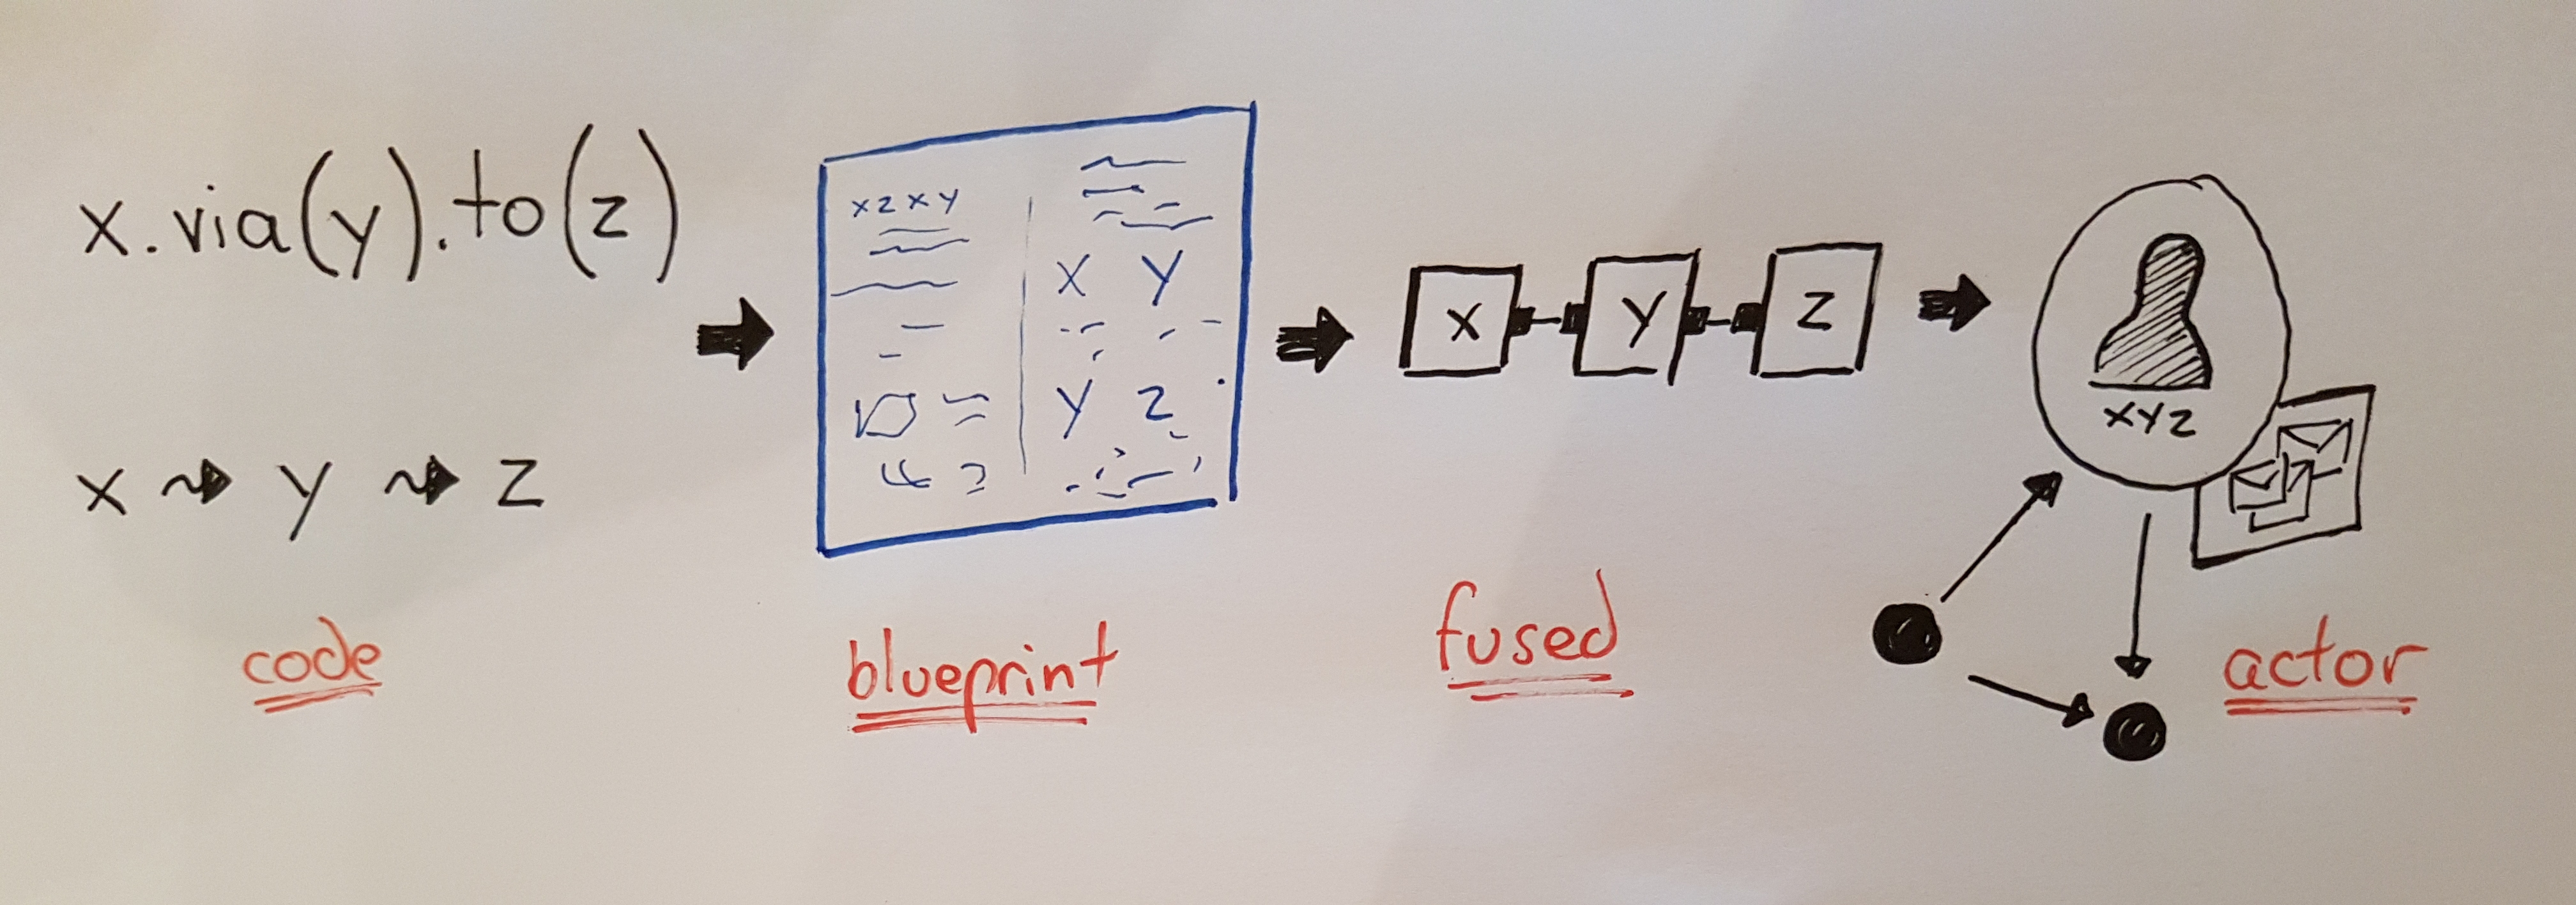 x.via(y).to(z)
x ⇝ y ⇝ z
code
x z x y
X Y
Y Z
blueprint
X Y Z
fused
XYZ
actor